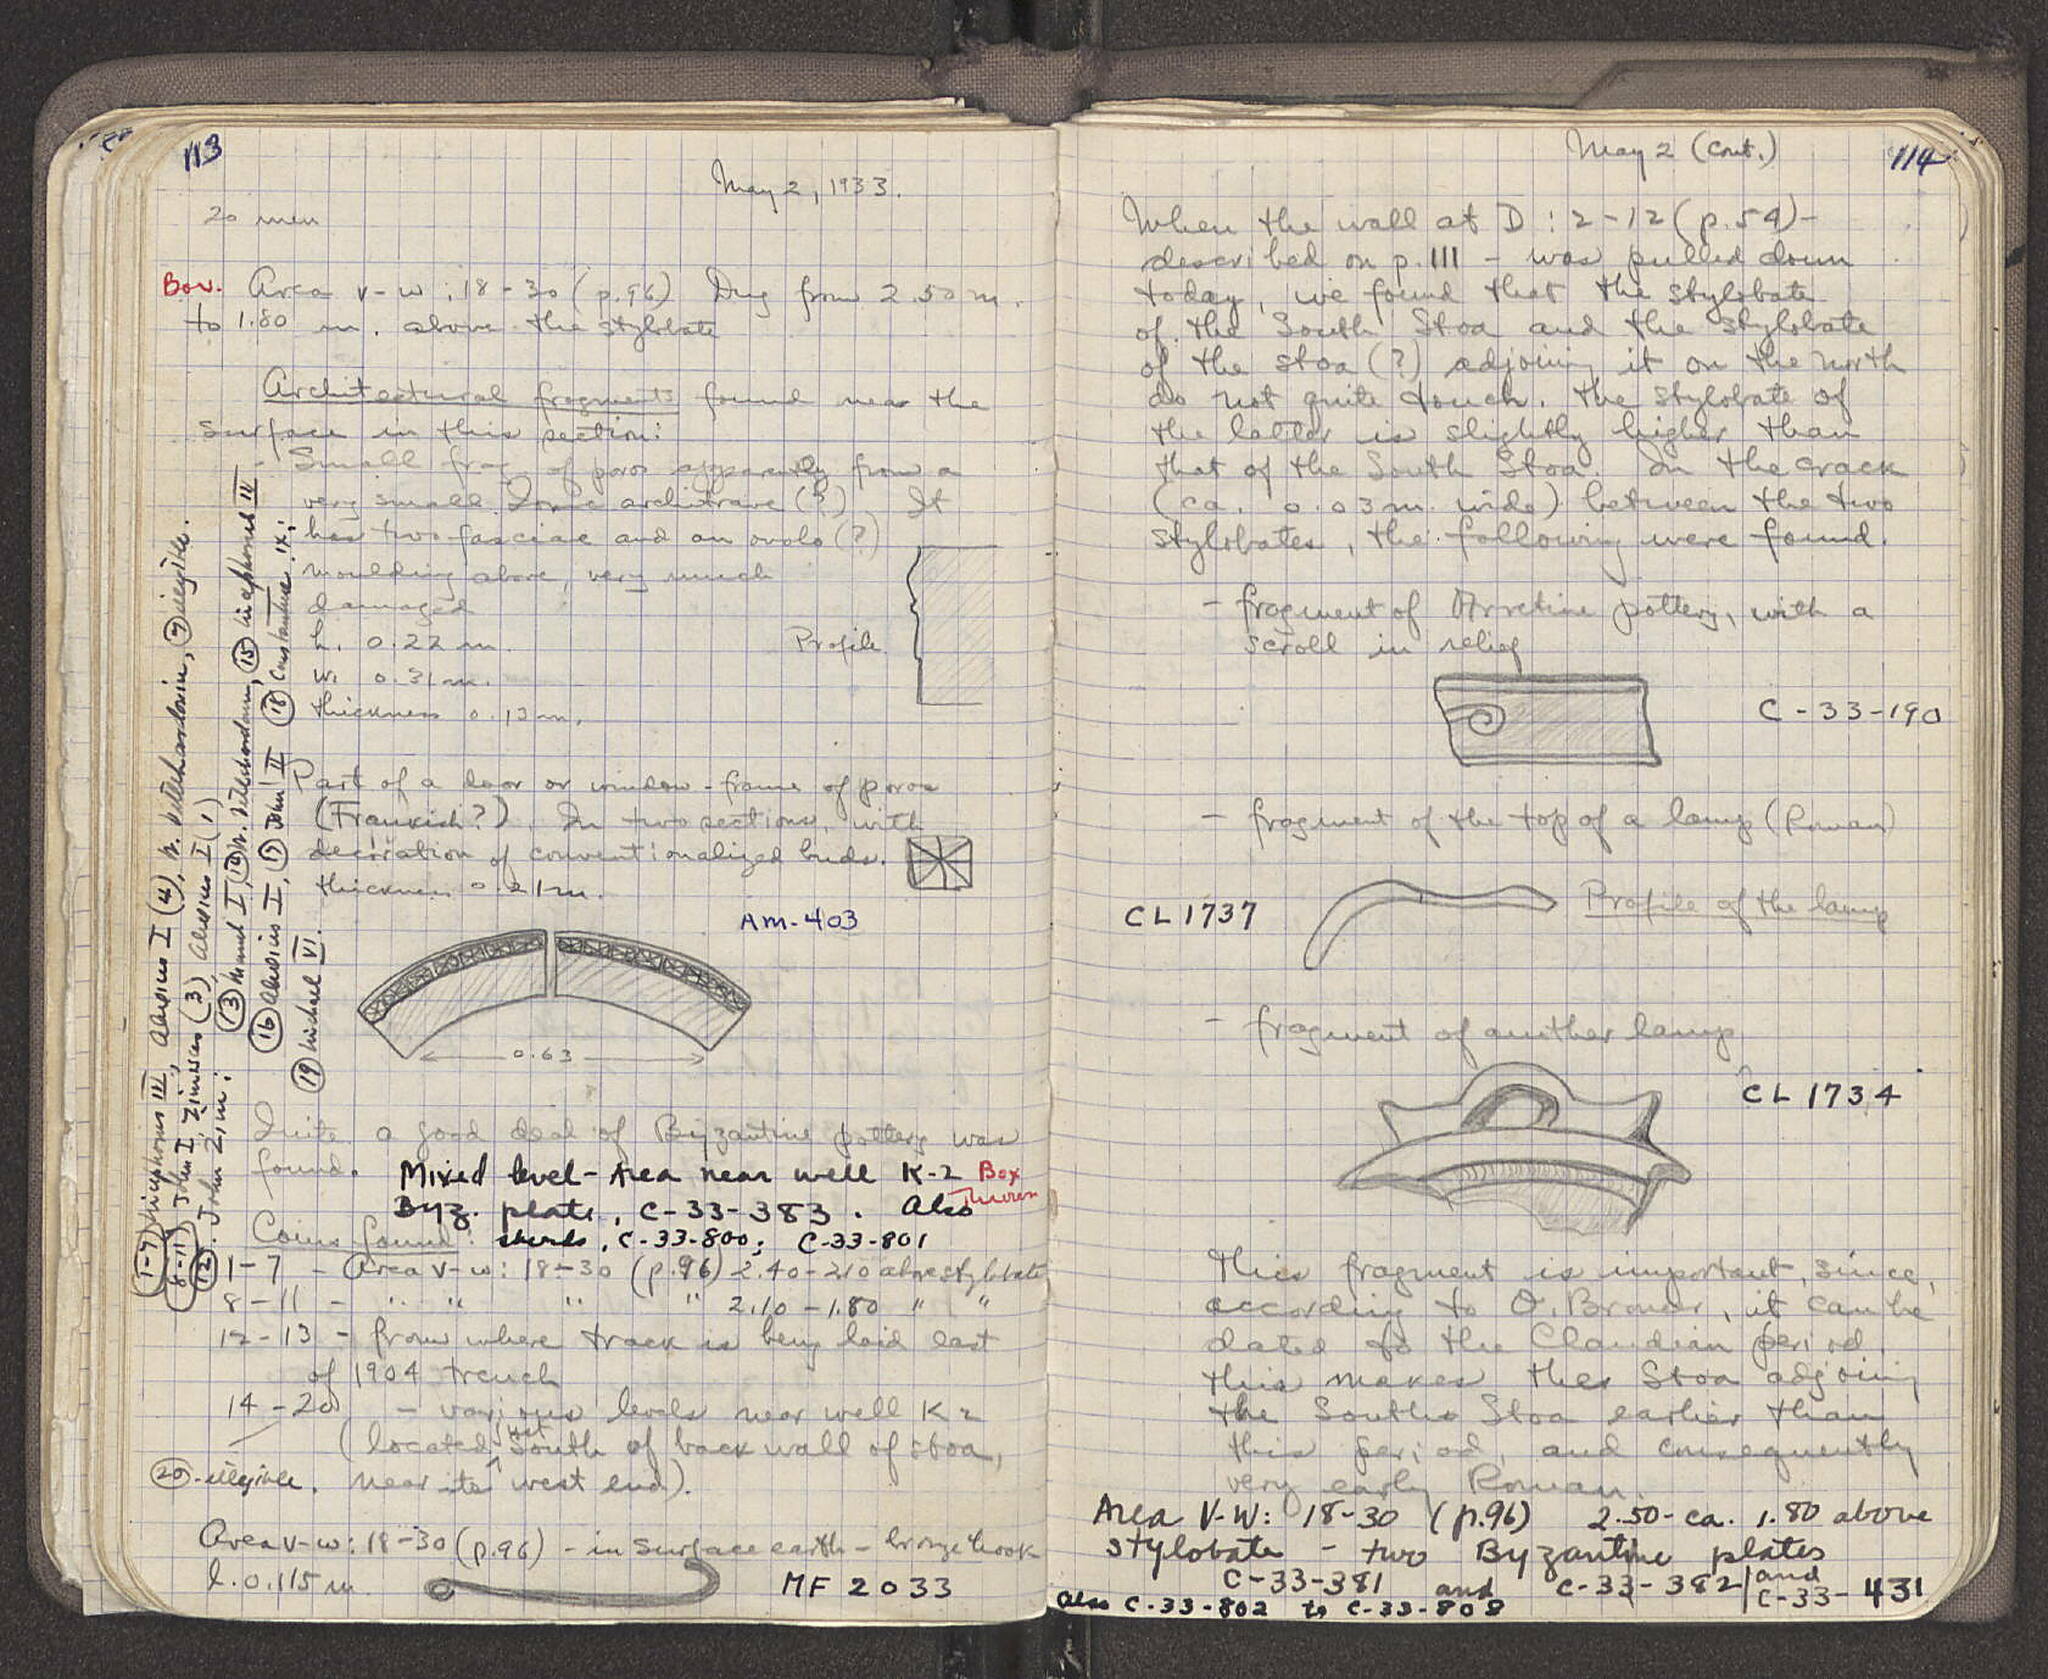 113
May 2, 1933.
20 men
Box. Area V-W: 18-30 (p.96) Dug from 2.50 m.
to 1.80 m. above the stylobate
Architectural fragments found near the
surface in this section:
- Small frag. of poros apparently from a
very small Ionic architrave (?). It
has two fasciae and an ovolo (?)
moulding above, very much
damaged
L. 0.22 m.
W. 0.31 m.
thickness 0.13 m.
Profile
Part of a door or window-frame of poros
(Frankish?). In two sections, with
decoration of conventionalized buds.
thickness 0.21 m.
AM-403
0.63
Quite a good deal of Byzantine pottery was
found. Mixed level - Area near well K-2 Box
Byz. plate, C-33-383. Also thrown
Coins found: sherds, C-33-800; C-33-801
1-7 - Area V-W: 18-30 (p.96) 2.40-2.10 above stylobate
8-11 - " " " " 2.10-1.80 " "
12-13 - from where track is being laid east
of 1904 trench
14-20 - various levels near well K2
(located just south of back wall of stoa,
20-illegible. near its west end).
Area V-W: 18-30 (p.96) - in surface earth - bronze hook
l. 0.115 m.
MF 2033
1-7 Nicephorus III, Alexius I (4), W. Villehardouin, 7 illegible.
8-11 John I Zimisces (3), Alexius I (1)
12. John Z, M: 13 Manuel I, 14 W. Villehardouin, 15 Nicephorus II
16 Alexius I, 17 John II 18 Constantine IX;
19 Michael VI.
May 2 (cont.)
114
When the wall at D: 2-12 (p.54) -
described on p. 111 - was pulled down
today, we found that the stylobate
of the South Stoa and the stylobate
of the stoa (?) adjoining it on the north
do not quite touch. The stylobate of
the latter is slightly higher than
that of the South Stoa. In the crack
(ca. 0.03 m. wide) between the two
stylobates, the following were found.
- fragment of Arretine pottery, with a
scroll in relief
C-33-190
- fragment of the top of a lamp (Roman)
CL 1737
Profile of the lamp
- fragment of another lamp
CL 1734
This fragment is important, since,
according to O. Broneer, it can be
dated to the Claudian period.
This makes the Stoa adjoining
the South Stoa earlier than
this period, and consequently
very early Roman.
Area V-W: 18-30 (p.96) 2.50-ca. 1.80 above
stylobate - two Byzantine plates
C-33-381 and C-33-382 and
C-33-431
also C-33-802 to C-33-808